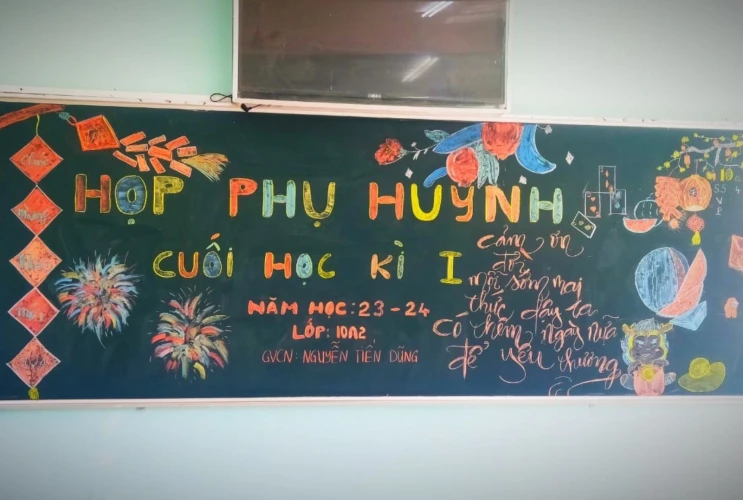 HỌP PHỤ HUYNH
CUỐI HỌC KÌ I
NĂM HỌC: 23 - 24
LỚP: 10A2
GVCN: NGUYỄN TIẾN DŨNG
cảm ơn
đời
mỗi sớm mai
thức dậy ta
có thêm ngày nữa
để yêu thương